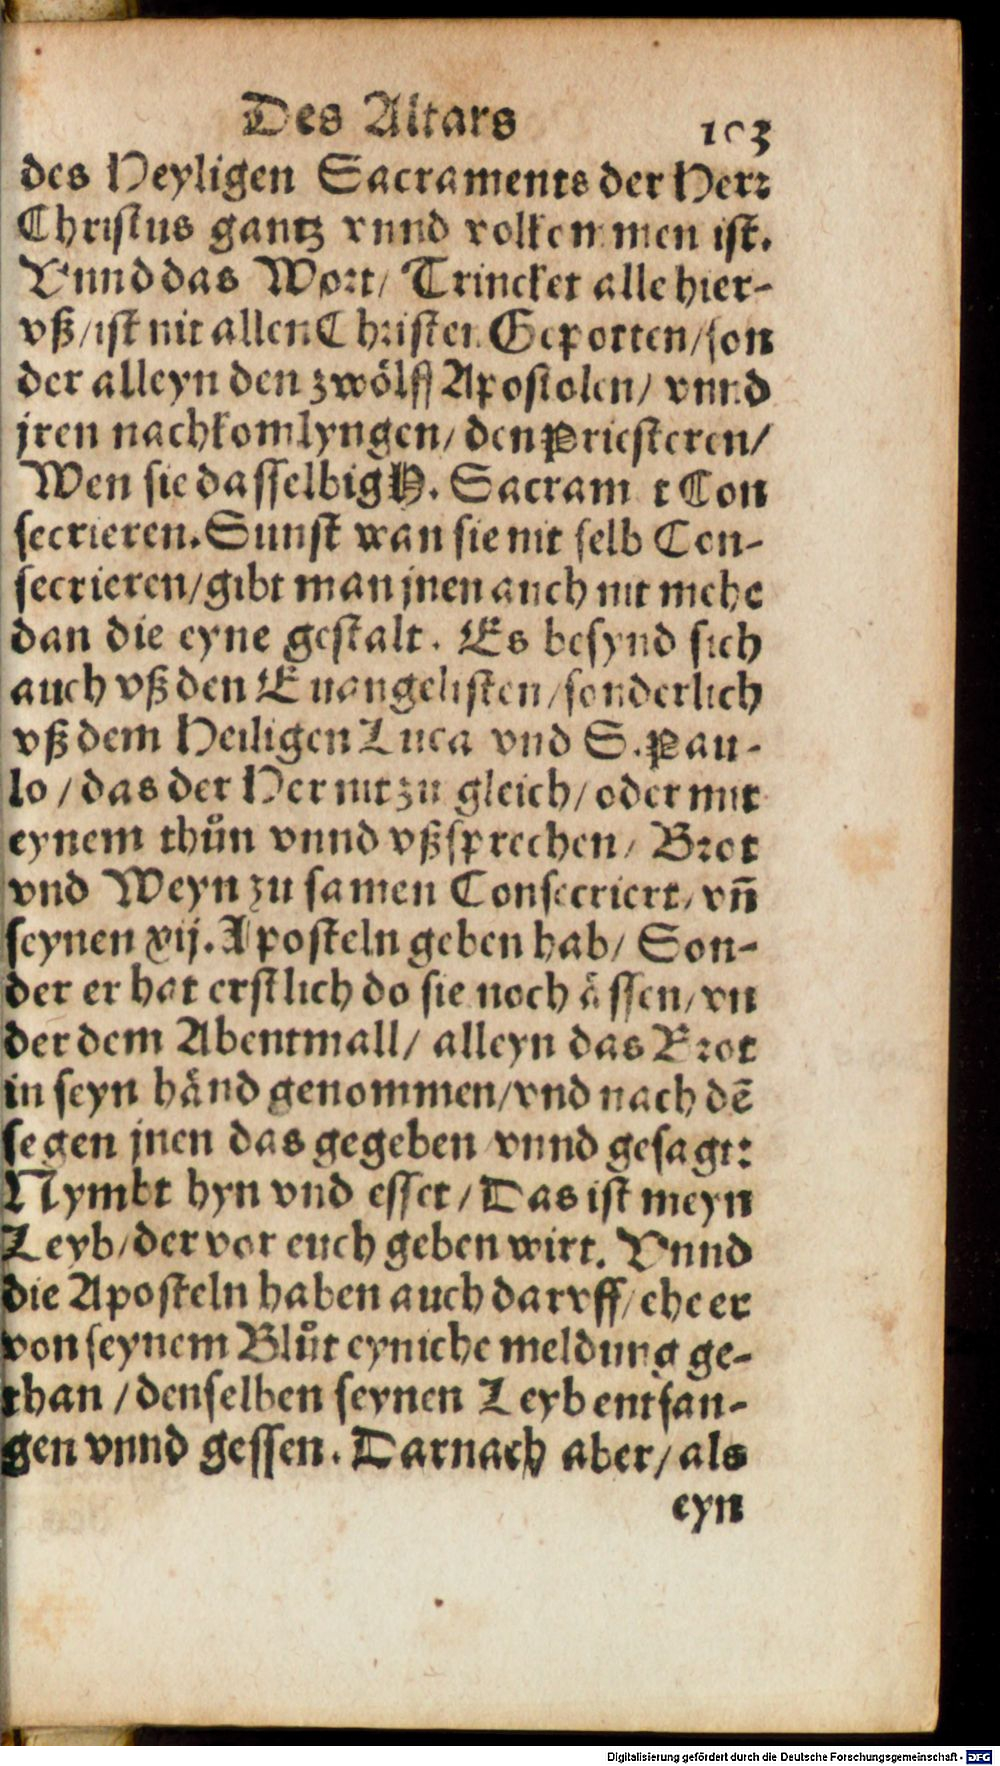 Des Altars
103
des Heyligen Sacraments der Herr
Christus gantz vnnd volkommen ist.
Vnnd das Wort/ Trincket alle hier-
vß/ist nit allen Christen Gepotten/son
der alleyn den zwölff Apostolen/ vnnd
jren nachkomlyngen/ den Priesteren/
Wen sie dasselbig H. Sacram t Con
secrieren. Sunst wan sie nit selb Con-
secrieren/gibt man jnen auch nit mehe
dan die eyne gestalt. Es befynd sich
auch vß den Euangelisten/sonderlich
vß dem Heiligen Luca vnd S. Pau-
lo /das der Her nit zu gleich/oder mit
eynem thůn vnnd vßsprechen/ Brot
vnd Weyn zu samen Consecriert/ vñ
seynen xij. Aposteln geben hab/ Son-
der er hat erstlich do sie noch ässen/vn
der dem Abentmall/ alleyn das Brot
in seyn händ genommen/vnd nach dẽ
segen jnen das gegeben vnnd gesagt:
Nymbt hyn vnd esset/Das ist meyn
Leyb/der vor euch geben wirt. Vnnd
die Aposteln haben auch darvff/ehe er
von seynem Blůt eyniche meldung ge-
than /denselben seynen Leyb entfan-
gen vnnd gessen. Darnach aber/als
eyn
Digitalisierung gefördert durch die Deutsche Forschungsgemeinschaft - DFG